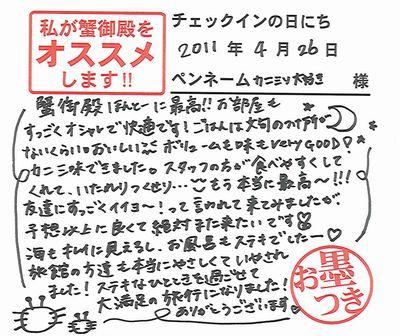 私が蟹御殿を
オススメ
します!!
チェックインの日にち
2011 年 4 月 26 日
ペンネーム カニミソ大好き 様
蟹御殿ほんとーに最高!!お部屋も
すっごくオシャレで快適です!ごはんは文句のつけ所が
ないくらいおいしい ボリュームも味もVERY GOOD!
カニ三昧できました。スタッフの方が食べやすくして
くれて、いたれりつくせり… もう本当に最高〜!!!
友達にすっごくイイヨー!って言われて来てみましたが
予想以上に良くて絶対また来たいです
海もキレイに見えるし、お風呂もステキでしたー♡
旅館の方達も本当にやさしくていやされ
ました!ステキなひとときを過ごせて
大満足の旅行になりました!
ありがとうございます
お墨
つき